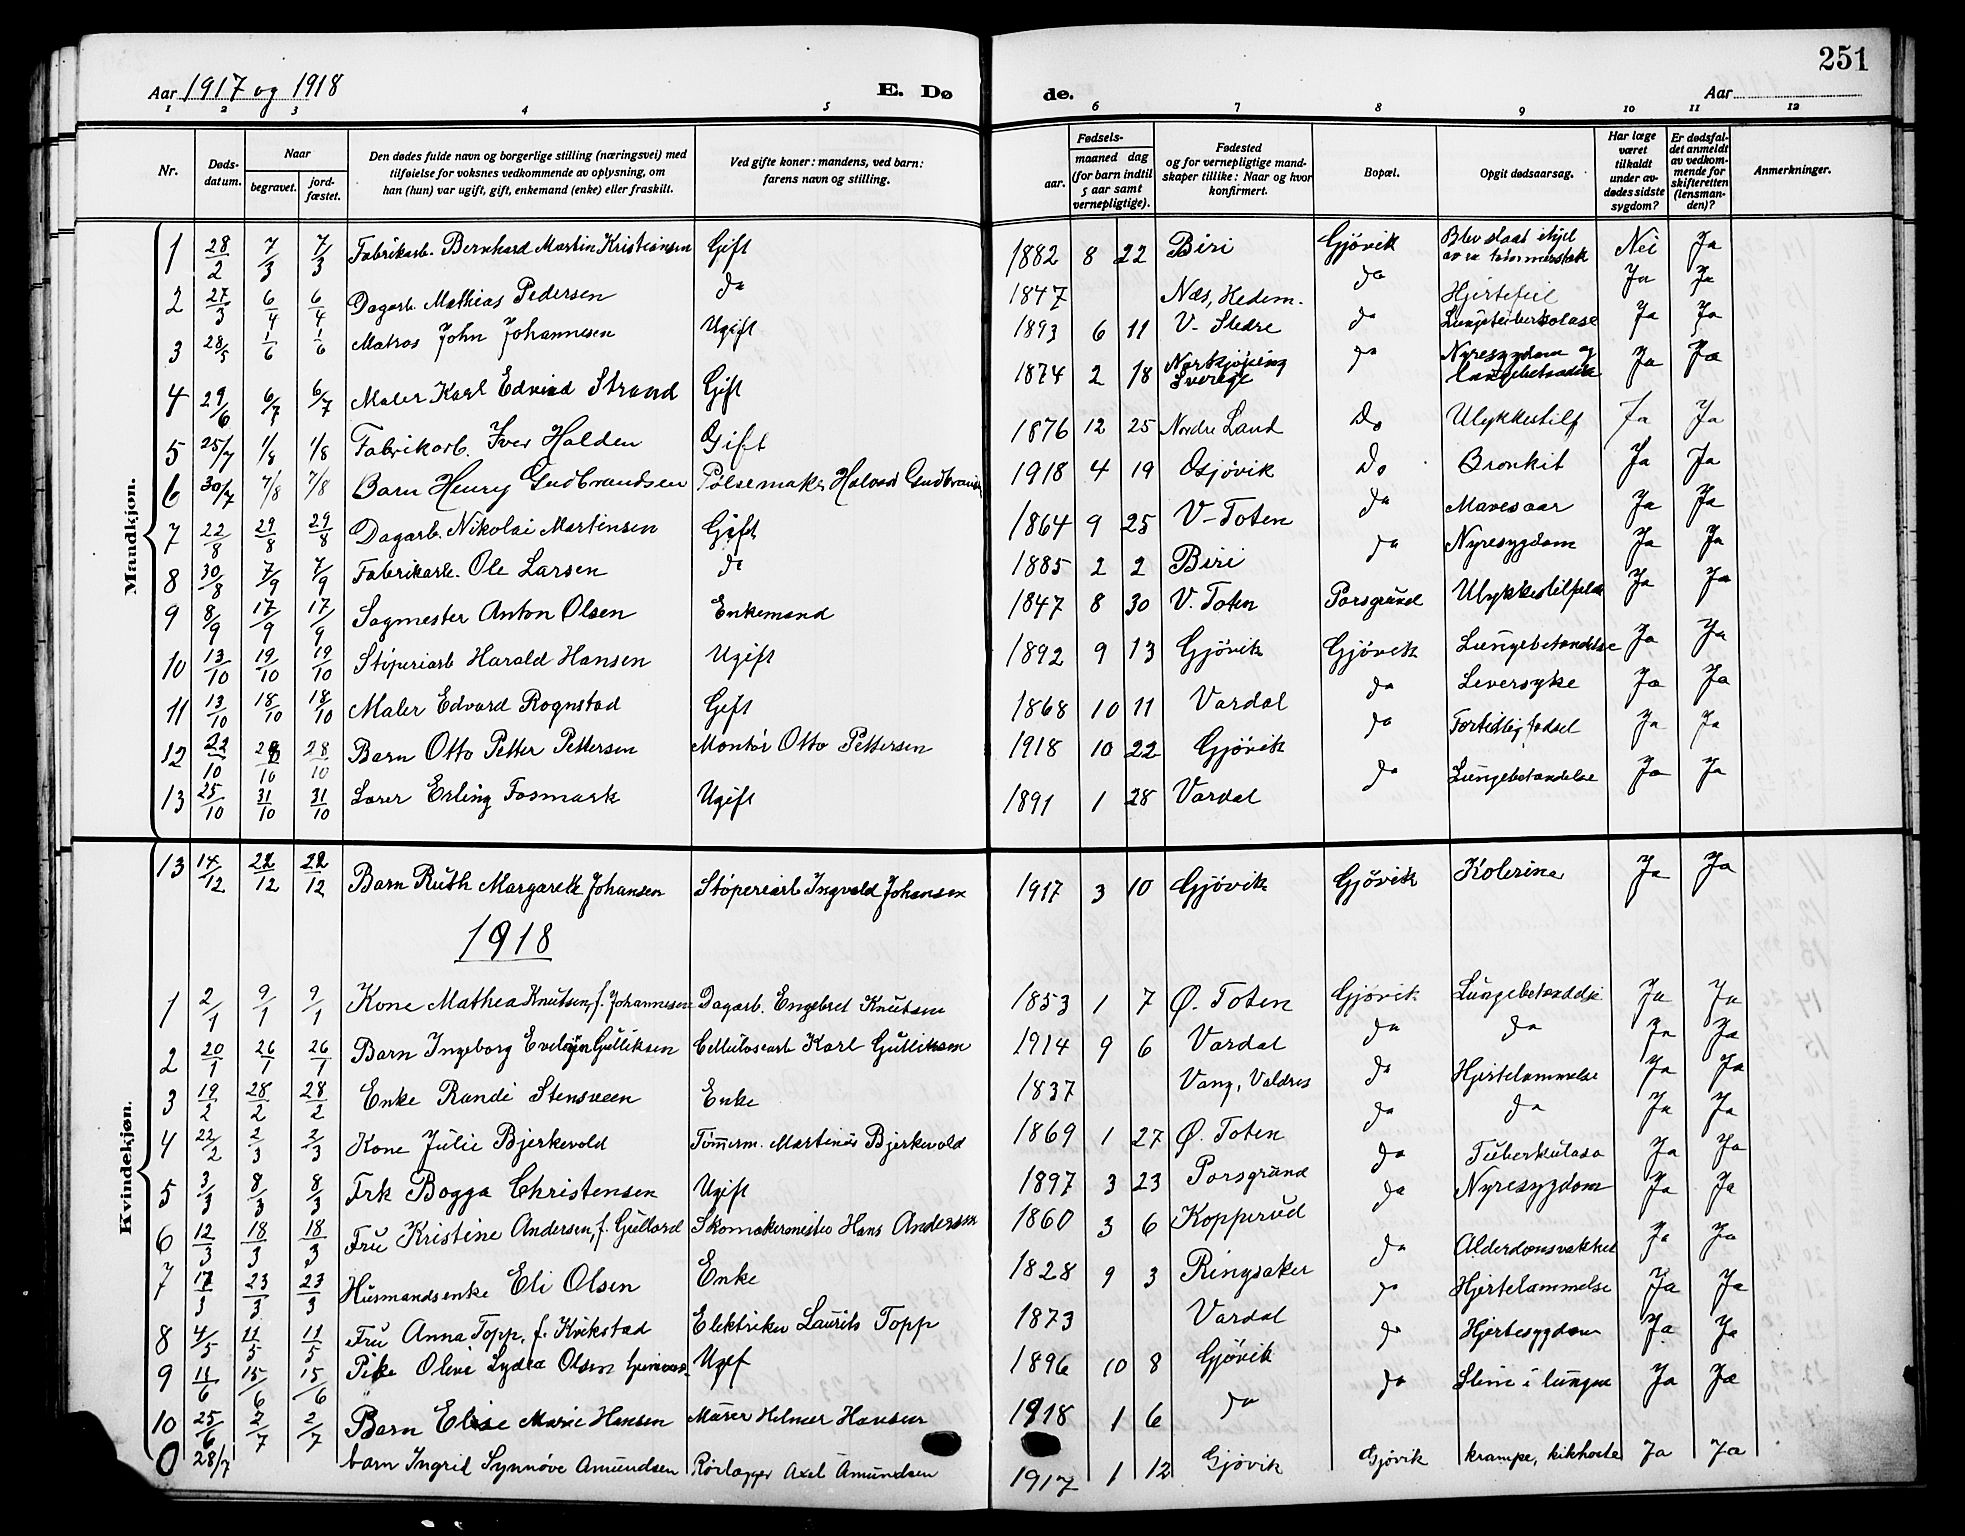 251
Aar 1917 og 1918 E. Døde. Aar
1 2 3 4 5 6 7 8 9 10 11 12
Nr. Døds-datum. Naar begravet. jord-fæstet. Den dødes fulde navn og borgerlige stilling (næringsvei) med tilføielse for voksnes vedkommende av oplysning, om han (hun) var ugift, gift, enkemand (enke) eller fraskilt. Ved gifte koner: mandens, ved barn: farens navn og stilling. Fødsels- aar. maaned dag (for barn indtil 5 aar samt vernepligtige). Fødested og for vernepligtige mand-skaper tillike: Naar og hvor konfirmert. Bopæl. Opgit dødsaarsag. Har læge været tilkaldt under av-dødes sidste sygdom? Er dødsfal-det anmeldt av vedkom-mende for skifteretten (lensman-den)? Anmerkninger.
Mandkjøn.
1 28/2 7/3 7/3 Fabrikarb. Bernhard Martin Kristiansen Gift 1882 8 22 Biri Gjøvik Blev slaat ihjel av en tømmerstok Nei Ja
2 27/3 6/4 6/4 Dagarb. Mathias Pedersen do 1847 Næs, Hedem. do Hjertefeil Ja Ja
3 28/5 1/6 1/6 Matros John Johannesen Ugift 1893 6 11 V. Slidre do Lungetuberkolose Ja Ja
4 29/6 6/7 6/7 Maler Karl Edvind Strand Gift 1874 2 18 Norkjøping Sverige do Nyresygdom og Ja Ja
5 25/7 1/8 1/8 Fabrikarb. Iver Holden Gift 1876 12 25 Nordre Land Do Ulykkestilf Ja Ja
6 30/7 7/8 7/8 Barn Henry Gudbrandsen Pølsemaker Halvard Gudbrands 1918 4 19 Gjøvik Do Bronkit Ja Ja
7 22/8 29/8 29/8 Dagarb. Nikolai Martinsen Gift 1864 9 25 V-Toten do Mavesaar Ja Ja
8 30/8 7/9 7/9 Fabrikarb. Ole Larsen do 1885 2 2 Biri do Nyresygdom Ja Ja
9 8/9 17/9 17/9 Sagmester Anton Olsen Enkemand 1847 8 30 V. Toten Porsgrund Ulykkestilfælde Ja Ja
10 13/10 19/10 19/10 Støperiarb Harald Hansen Ugift 1892 9 13 Gjøvik Gjøvik Lungebetændelse Ja Ja
11 13/10 18/10 18/10 Maler Edvard Rognstad Gift 1868 10 11 Vardal do Leversyke Ja Ja
12 22/10 28/10 28/10 Barn Otto Petter Pettersen Montør Otto Pettersen 1918 10 22 Gjøvik do Fortidlig fødsel Ja Ja
13 25/10 31/10 31/10 Lærer Erling Fosmark Ugift 1891 1 28 Vardal do Lungebetændelse Ja Ja
Kvindekjøn.
13 14/12 22/12 22/12 Barn Ruth Margarethe Johansen Støperiarb Ingvald Johansen 1917 3 10 Gjøvik Gjøvik Kolerine Ja Ja
1918
1 2/1 9/1 9/1 Kone Mathea Knutsen, f. Johannesen Dagarb. Engebret Knutsen 1853 1 7 Ø. Toten Gjøvik Lungebetændelse Ja Ja
2 20/1 26/1 26/1 Barn Ingeborg Evelyn Gulliksen Cellulosearb Karl Gulliksen 1914 9 6 Vardal do do Ja Ja
3 19/2 28/2 28/2 Enke Randi Stensveen Enke 1837 Vang, Valdres do Hjertelammelse Ja Ja
4 22/2 2/3 2/3 Kone Julie Bjerkevold Tømmerm. Martinius Bjerkevold 1869 1 27 Ø. Toten do do Ja Ja
5 3/3 8/3 8/3 Frk Bogga Christensen Ugift 1897 3 23 Porsgrund do Tuberkulose Ja Ja
6 12/3 18/3 18/3 Fru Kristine Andersen, f. Gullord Skomakermester Hans Andersen 1860 3 6 Kopperud do Nyresygdom Ja Ja
7 17/3 23/3 23/3 Husmandsenke Eli Olsen Enke 1828 9 3 Ringsaker do Alderdomsvakhet Ja Ja
8 4/5 11/5 11/5 Fru Anna Topp, f. Krikstad Elektriker Laurits Topp 1873 Vardal do Hjertelammelse Ja Ja
9 11/6 15/6 15/6 Pike Oline Lydia Olsen Ugif 1896 10 8 Gjøvik do Hjertesygdom Ja Ja
10 25/6 2/7 2/7 Barn Elise Marie Hansen Murer Helmer Hansen 1918 1 6 do do Slim i lungene Ja Ja
0 28/7 barn Ingrid Synnøve Amundsen Rørlægger Axel Amundsen 1917 1 12 Gjøvik Gjøvik krampe, kikhoste Ja Ja